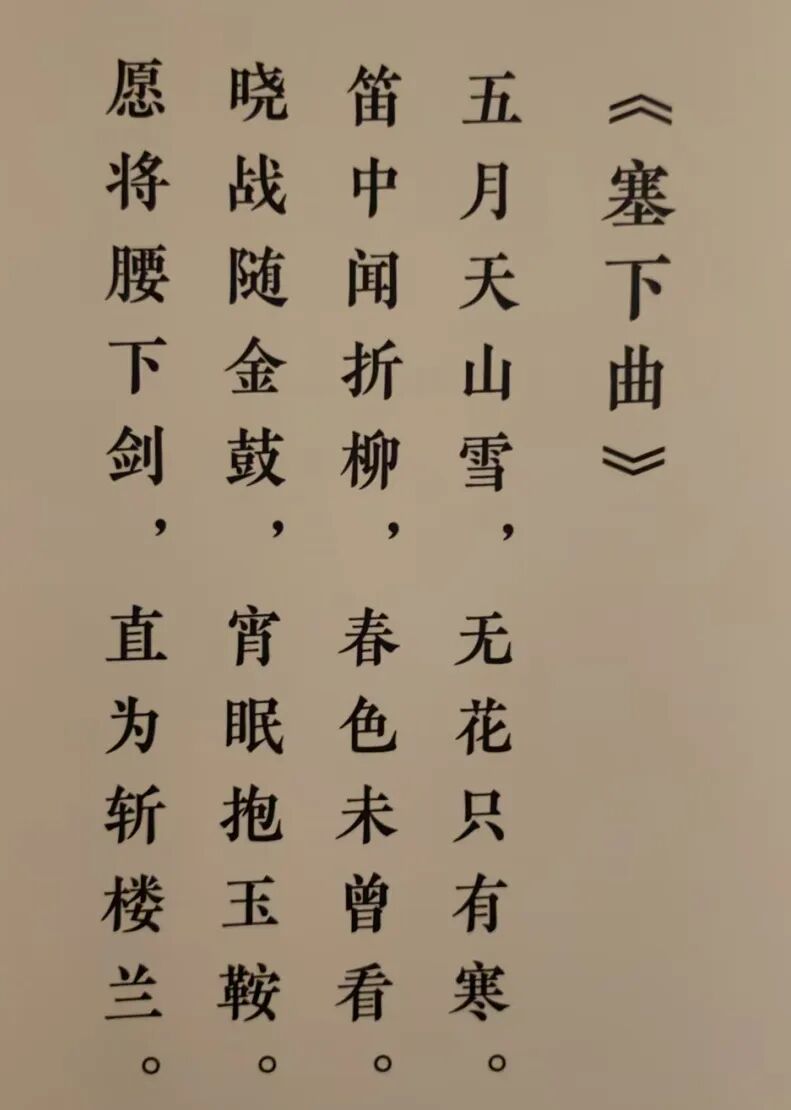 《塞下曲》
五月天山雪，无花只有寒。
笛中闻折柳，春色未曾看。
晓战随金鼓，宵眠抱玉鞍。
愿将腰下剑，直为斩楼兰。